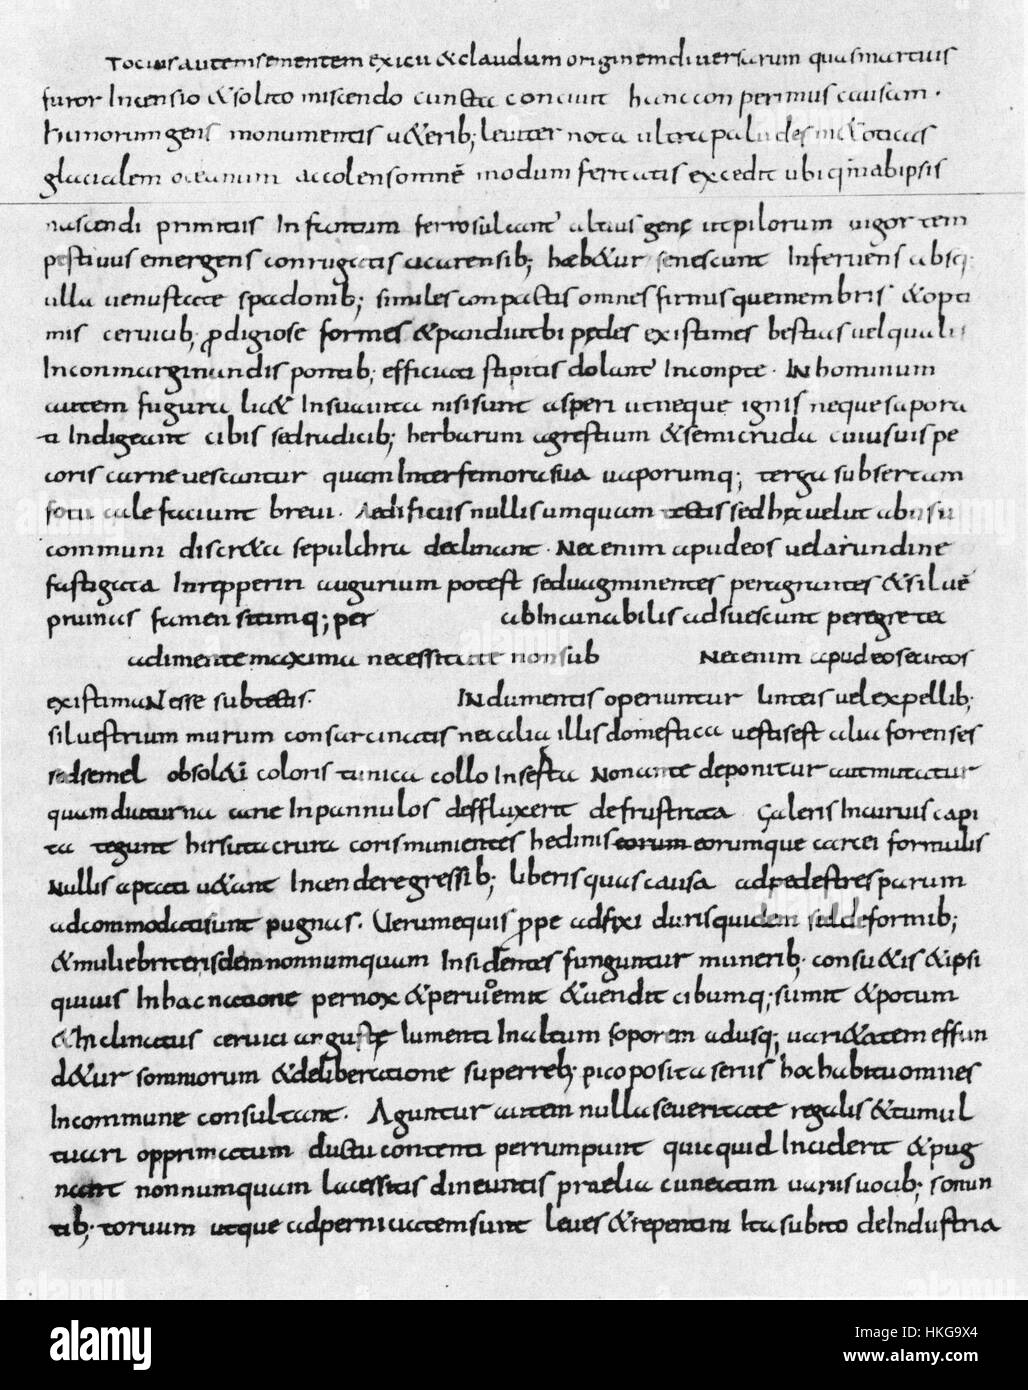 Tocius autem sementem exicii & cladum originem diversarum quas martius
furor Incensio & solito miscendo cuncta conciuit hanc conperimus causam.
hunorum gens monumentis u&erib; leuiter nota ultra paludes m&oticas
glacialem oceanum accolens omnē modum feritatis excedit ubi quniam abipsis
nascendi primitiis Infantum ferro sulcant altius genę ut pilorum uigor tem
pestiuus emergens conrugatis cicatrensib; hæb&ur senescunt Inferuens absq;
ulla uenustate spadonib; similes conpactis omnes firmisque membris & opi
mis ceruicib; prodigiose formes & pandi ut bipędes existimes bestias uel quali
In conmarginandis pontib; efficiati stipitis dolant Inconpte. IN hominum
autem fugura li& Insuauita nisi sunt asperi ut neque ignis neque sapora
ti Indigeant cibis sed radicib; herbarum agrestium & semicruda cuiusuis pe
coris carne vescantur quam Inter femora sua uaporumq; terga subsertam
fotu cale faciunt breui. Aedificiis nullis umquam tectis sed hęc uelut ab usu
communi discr&a sepulchra declinant. Nec enim apud eos uel arundine
fastigata Inrepperiri augurium potest sed uagminentes peragrantes & siluē
pruinas famem sitimq; per ab Incunabilis adsuescunt peregre tec
adimente maxima necessitate non sub Nec enim apud eos ecutos
existimaNesse sub tectis. INdumentis operiuntur linteis uel ex pellib;
siluestrium murum consarcinatis nec alia illis domestica uestis est alia forenses
sed semel obsol&i coloris tunica collo Inserta Non ante deponitur aut mutatur
quam duturna carie In pannulos deffluxerit defrustata Galeris Incuruis capi
ta tegunt hirsuta crura coris munientes hedinis eorum eorumque carcei formulis
Nullis aptati u&ant Incendere gressib; liberis qua causa ad pedestres parum
adcommodati sunt pugnas. Uerum equis prope adfixi duris quidem sed deformib;
& muliebriter isdem non numquam Insidentes funguntur munerib; consu&is & ipsi
quiuis In hac natione pernox & perui emit & uendit cibumq; sumit & potum
& Inclinatus ceruici angustę iumenti In altum soporem adusq; uari&atem effun
d&ur somniorum & deliberatione super reb; pico posita seriis hoc habitu omnes
In commune consultant. Aguntur autem nulla seueritate regalis & tumul
tuari opprimatum ductu contenti perrumpunt quicquid Inciderit & pug
nant non numquam lacessitis dineuntis praelia cuneatim uariis uocib; sonan
tib; toruum utque ad pernicitatem sunt leues & repentini Ita subito de Industria
alamy
HKG9X4
www.alamy.com